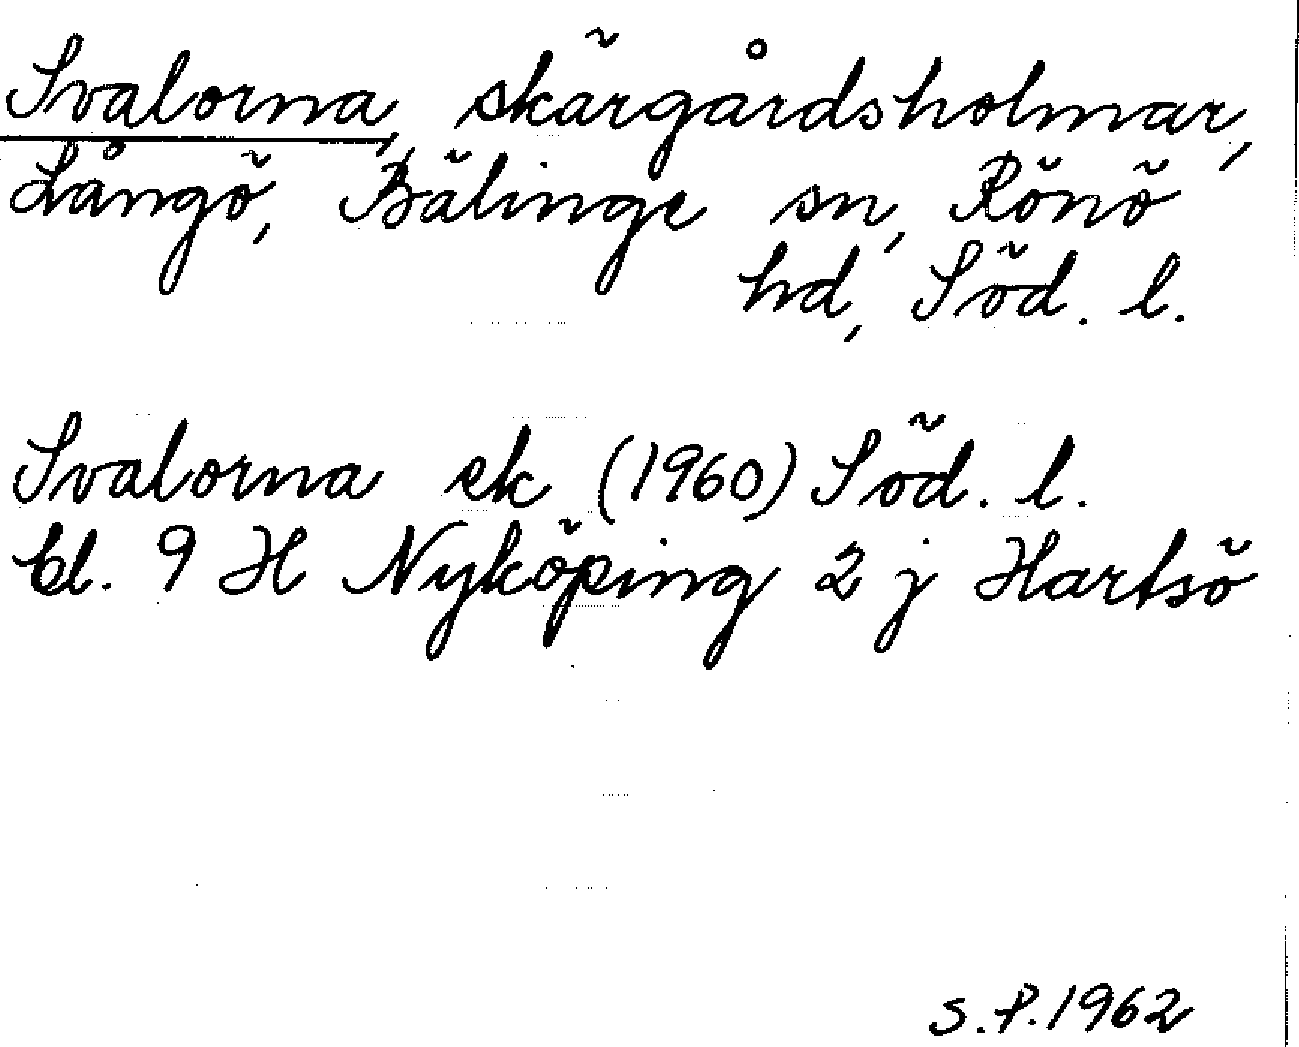 Svalorna, skärgårdsholmar,
Långö, Bälinge sn, Rönö
hd, Söd. l.
Svalorna ek (1960) Söd. l.
bl. 9 H Nyköping 2 j Hartsö
S.P.1962